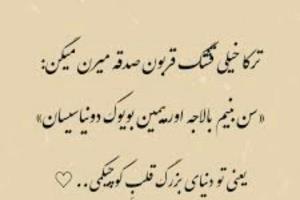 ترکا خیلی قشنگ قربون صدقه میرن میگن:
«سن بنیم بالاجه اوریمین بویوک دونیاسیسان»
یعنی تو دنیای بزرگ قلب کوچیکمی.. ♡